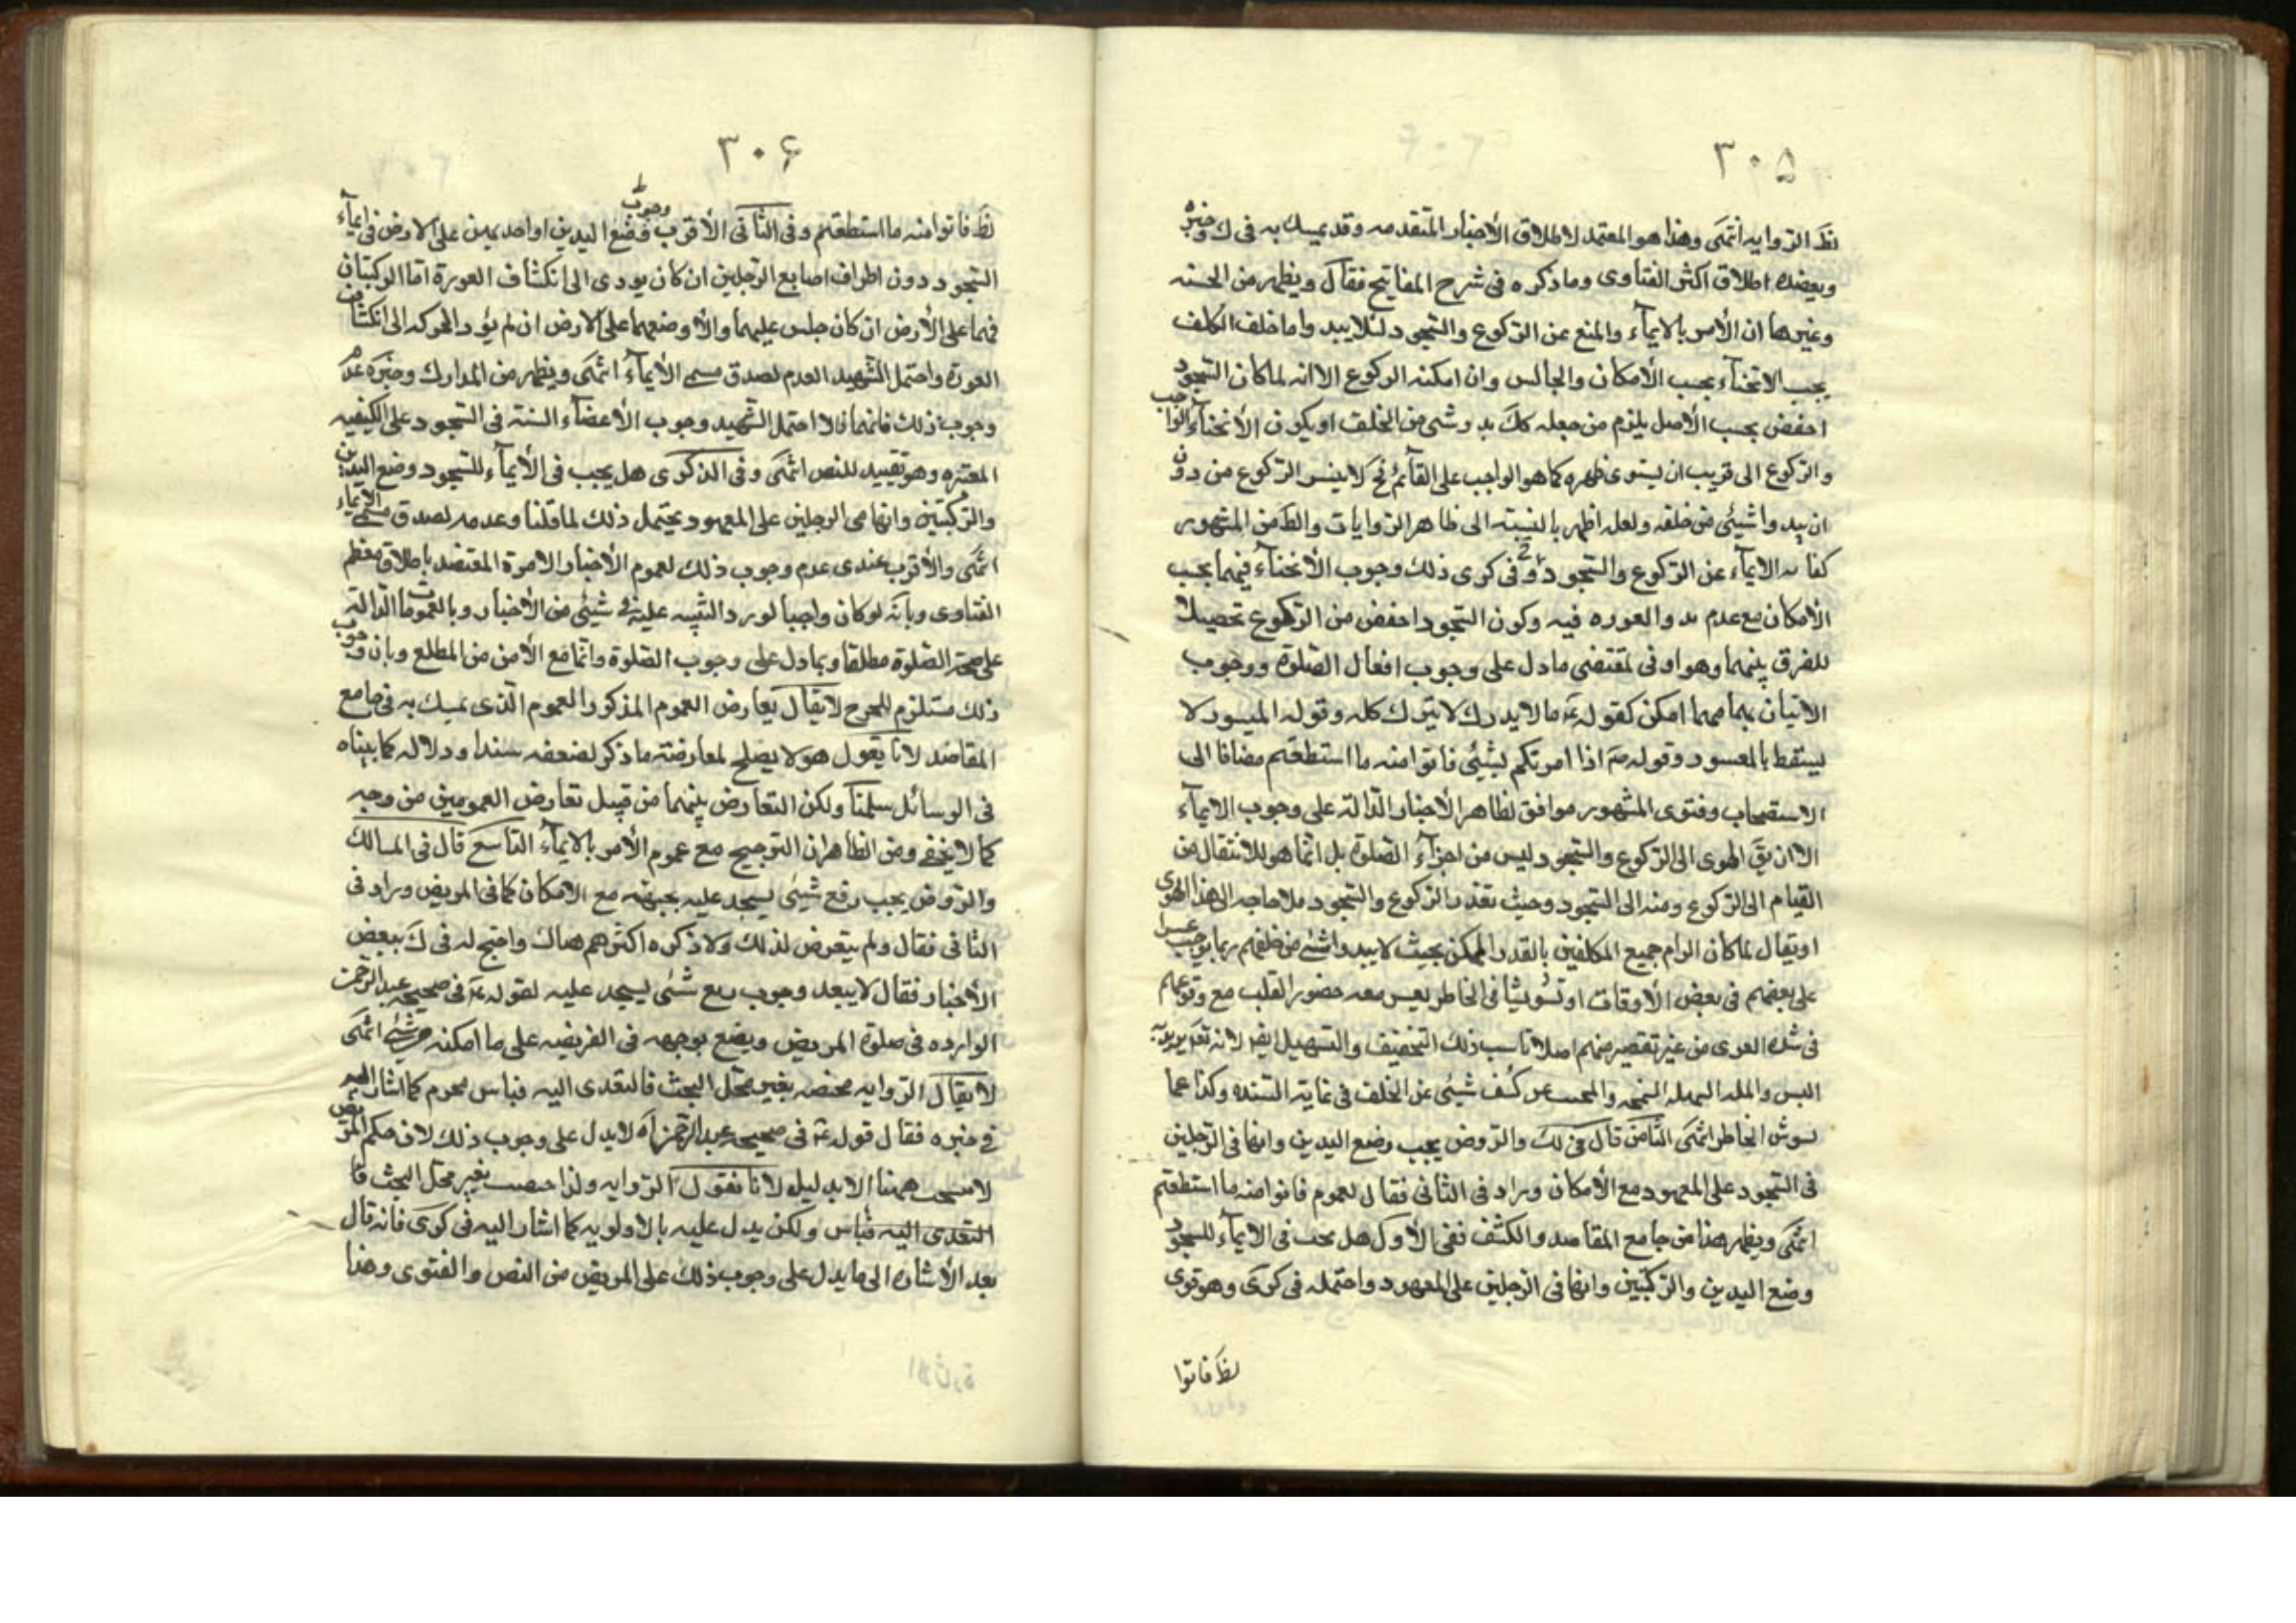 ٣٠٥
لظ الروايه انتهى وهذا هو المعتمد لاطلاق الأخبار المتقدمه وقد يمسك به فى ك وخيره
ويعضده اطلاق اكثر الفتاوى وما ذكره فى شرح المفاتيح فقال ويظهر من الحسنه
وغيرها ان الأمر بالايمآء والمنع عن الركوع والسجود لئلا يبد واما خلف المكلف
يجب الانحنآء بحسب الأمكان والجالس وان امكنه الركوع الا انه لما كان السجود
اخفض بحسب الأصل يلزم من جعله كك بد وشئ من الخلف او يكون الأنحنآء الواجب
والركوع الى قريب ان يستوى ظهره كما هو الواجب على القآئم فح لا يتيسر الركوع من دون
ان يبد واشيئى من خلفه ولعله اظهر بالنسبته الى ظاهر الروايات والظ من المشهور
كفايه الايمآء عن الركوع والسجود وفى كرى ذلك وجوب الأنحنآء فيهما بحسب
الأمكان مع عدم بد والعوره فيه وكون السجود اخفض من الركوع تحصيلا
للفرق بينهما وهو اوفى لمقتضى مادل على وجوب افعال الصلوة ووجوب
الاتيان بهما مهما امكن كقوله ع ما لا يدرك لا يترك كله وقوله الميسور لا
يسقط بالمعسور وقوله ص اذا امرتكم بشيئى فاتوا منه ما استطعتم مضافا الى
الاستصحاب وفتوى المشهور موافق لظاهر الأخبار الدالة على وجوب الايمآء
الا ان يق الهوى الى الركوع والسجود ليس من اجزآء الصلوة بل انما هو للانتقال من
القيام الى الركوع ومنه الى السجود وحيث تعذر الركوع والسجود فلا حاجه الى هذا الهوى
او يقال لما كان الزام جميع المكلفين بالقدر الممكن بحيث لا يبد واشئ من خلفهم ربما يوجب عسرا
على بعضهم فى بعض الأوقات او تشويشا فى الخاطر يعسر معه حضور القلب مع وقوعهم
فى شدة العرى من غير تقصير منهم اصلا ناسب ذلك التخفيف والتسهيل ايض لانه تع يريد
اليسر والمله السهله السمحه والتحسب عن كشف شيئى عن الخلف فى غاية الشده وكذا عما
يشوش الخاطر انتهى الثامن قال فى لك والروض يجب وضع اليدين وابهامى الرجلين
فى السجود على المعهود مع الأمكان وزاد فى الثانى فقال لعموم فاتوا منه ما استطعتم
انتهى ويظهر هذا من جامع المقاصد والكشف ففى الأول هل يجب فى الايمآء للسجود
وضع اليدين والركبتين وابهامى الرجلين على المعهود واحتمله فى كرى وهو قوى
لظ فاتوا
٣٠۶
لظ فاتوا منه ما استطعتم وفى الثانى الأقرب وجوب وضع اليدين او احديهن على الارض فى ايمآء
السجود دون اطراف اصابع الرجلين ان كان يودى الى انكشاف العورة اما الركبتان
فهما على الأرض ان كان جلس عليهما والا وضعهما على الارض ان لم يؤد الحركه الى انكشاف
العورة واحتمل الشهيد العدم لصدق مسمى الأيمآء انتهى ويظهر من المدارك وخيره عدم
وجوب ذلك فانهما قالا احتمل الشهيد وجوب الأعضآء الستة فى السجود على الكيفيه
المعتبره وهو تقييد للنص انتهى وفى الذكرى هل يجب فى الأيمآء للسجود وضع اليدين
والركبتين وابهامى الرجلين على المعهود يحتمل ذلك لما قلنا وعدمه لصدق مسمى الايماء
انتهى والأقرب عندى عدم وجوب ذلك لعموم الأخبار الامرة المعتضد باطلاق معظم
الفتاوى وبانه لو كان واجبا لورد التنبيه عليه فى شيئى من الأخبار وبالعمومات الدالة
على صحة الصلوة مطلقا وبما دل على وجوب الصلوة وانما مع الأمن من المطلع وبان وجوب
ذلك مستلزم للحرج لا يقال يعارض العموم المذكور العموم الذى تمسك به فى جامع
المقاصد لانا نقول هو لا يصلح لمعارضته ما ذكر لضعفه سندا ودلاله كما بيناه
فى الوسائل سلمنا ولكن التعارض بينهما من قبيل تعارض العمومين من وجه
كما لا يخفى ومن الظاهران الترجيح مع عموم الأمر بالايمآء التاسع قال فى المسالك
والروض يجب رفع شيئى يسجد عليه بجبهته مع الامكان كما فى المريض وزاد فى
الثانى فقال ولم يتعرض لذلك ولا ذكره اكثرهم هناك واحتج له فى ك ببعض
الأخبار فقال لا يبعد وجوب رفع شئى يسجد عليه لقوله ع فى صحيحه عبد الرحمن
الوارده فى صلوة المريض ويضع بوجهه فى الفريضه على ما امكنه من شئى انتهى
لا يقال الروايه مختصه بغير محل البحث فالتعدى اليه قياس محرم كما اشار اليه
فى خيره فقال قوله ع فى صحيحه عبد الرحمن آه لا يدل على وجوب ذلك لان حكم المريض
لا ينسحب ههنا الا بدليل لانا نقول الروايه ولزا خصت بغير محل البحث فا
التعدى اليه قياس ولكن يدل عليه بالاولويه كما اشار اليه فى كرى فانه قال
بعد الأشارة الى ما يدل على وجوب ذلك على المريض من النص والفتوى وهذا